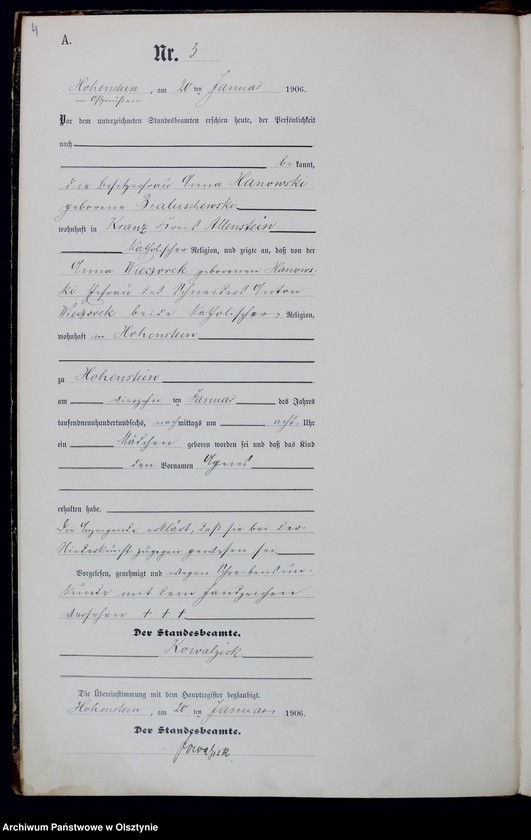 4
A.
Nr. 3
Hohenstein, am 20 ten Januar 1906.
in Ostpreußen
Vor dem unterzeichneten Standesbeamten erschien heute, der Persönlichkeit
nach
bekannt,
die Besitzerfrau Anna Hanowski
geborene Bialuschewski
wohnhaft in Kranz Kreis Allenstein
katholischer Religion, und zeigte an, daß von der
Anna Wieczorek geborenen Hanows-
ki Ehefrau des Schneiders Anton
Wieczorek beide katholischer Religion,
wohnhaft in Hohenstein
zu Hohenstein
am vierzehn ten Januar des Jahres
tausendneunhundertundsechs, nachmittags um acht Uhr
ein Mädchen geboren worden sei und daß das Kind
den Vornamen Agnes
erhalten habe.
Die Anzeigende erklärt, daß sie bei der
Niederkunft zugegen gewesen sei
Vorgelesen, genehmigt und wegen Schreibensun-
kunde mit dem Handzeichen
versehen + + +
Der Standesbeamte.
Kowalzick
Die Übereinstimmung mit dem Hauptregister beglaubigt.
Hohenstein, am 20 ten Januar 1906.
Der Standesbeamte.
Kowalzick
Archiwum Państwowe w Olsztynie